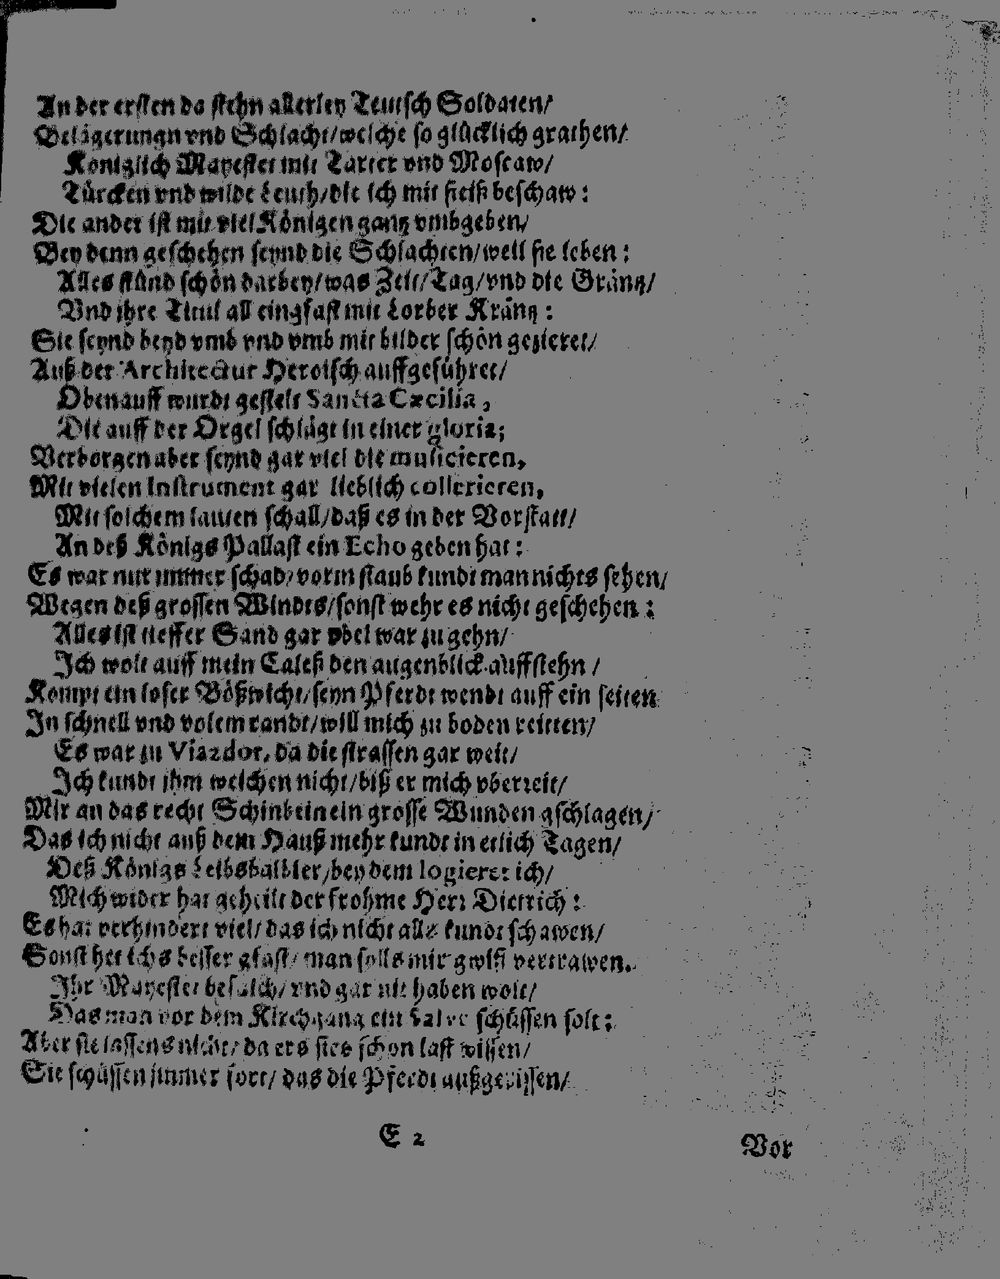 An der ersten da stehn allerley Teutsch Soldaten/
Belägerungn vnd Schlacht/welche so glücklich grathen/
Königlich Mayestet mit Tarter vnd Moscaw/
Türcken vnd wilde Leuth/die ich mit fleiß beschaw:
Die ander ist mit viel Königen gantz vmbgeben/
Bey denn geschehen seynd die Schlachten/weil sie leben:
Alles stünd schön darbey/was Zeit/Tag/vnd die Gräntz/
Vnd ihre Titul all eingfast mit Lorber Kräntz:
Sie seynd beyd vmb vnd vmb mit bilder schön gezieret/
Auß der Architectur Heroisch auffgeführet/
Obenauff wurdt gestelt Sancta Cæcilia,
Die auff der Orgel schlägt in einer gloria;
Verborgen aber seynd gar viel die musicieren,
Mit vielen Instrument gar lieblich collerieren,
Mit solchem lauten schall/daß es in der Vorstatt/
An deß Königs Pallast ein Echo geben hat:
Es war nur immer schad/vorm staub kundt man nichts sehen/
Wegen deß grossen Windts/sonst wehr es nicht geschehen:
Alles ist tieffer Sand gar vbel war zu gehn/
Ich wolt auff mein Caleß den augenblick auffstehn/
Kompt ein loser Bößwicht/seyn Pferdt wendt auff ein seiten
In schnell vnd volem randt/will mich zu boden reitten/
Es war zu Viazdor, da die strassen gar weit/
Ich kundt ihm weichen nicht/biß er mich vberreit/
Mir an das recht Schinbein ein grosse Wunden gschlagen/
Das ich nicht auß dem Hauß mehr kundt in etlich Tagen/
Deß Königs Leibsbalbier/bey dem logieret ich/
Mich wider hat geheilt der frohme Herr Dietrich:
Es hat verhindert viel/das ich nicht alls kundt schawen/
Sonst het ichs besser gfast/man solls mir gwiß vertrawen.
Ihr Mayestet befalch/vnd gar nit haben wolt/
Das man vor dem Kirchgang ein Salve schüssen solt:
Aber sie lassens nicht/da ers sies schon last wissen/
Sie schüssen immer fort/das die Pferdt außgerissen/
E 2
Vor